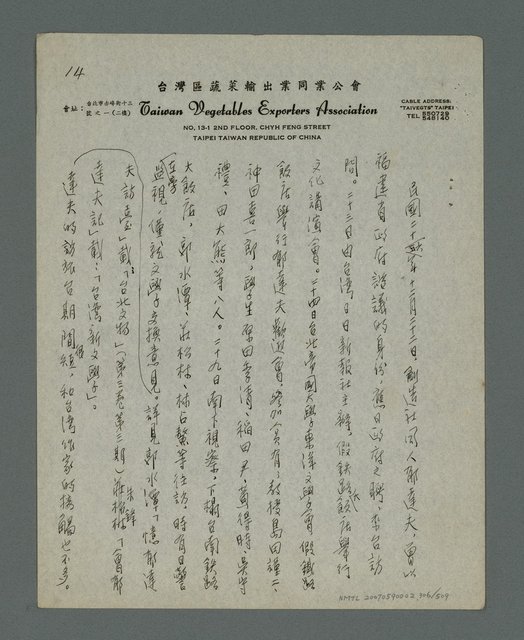 14
台灣區蔬菜輸出業同業公會
會址：台北市赤峰街十三號之一（二樓）
Taiwan Vegetables Exporters Association
CABLE ADDRESS: "TAIVEGTS" TAIPEI
TEL 550728 546184
NO. 13-1 2ND FLOOR, CHYH FENG STREET
TAIPEI TAIWAN REPUBLIC OF CHINA
民國二十五年十二月二十二日，創造社同人郁達夫，曾以
福建省政府諮議的身份，應日政府之聘，來台訪
問。二十三日由台湾日日新報社主辦，假鉄路飯店舉行
文化講演會。二十四日台北帝國大學東洋文學會假鐵路
飯店舉行郁達夫歡迎會，參加人員有：教授島田謹二、
神田喜一郎，學生原田季清、稲田尹、黃得時、吳守
禮、田大熊等八人。二十九日南下視察，下榻台南鉄路
大飯店，郭水潭、莊松林、林占鰲等往訪，時有日警
在旁
監視，僅就文學交換意見。詳見郭水潭「憶郁達
夫訪台」載「台北文物」（第三卷第三期）莊松林（朱鋒）「會郁
達夫記」載：「台灣新文學」。
達夫的訪報台期間很短，和台湾作家的接觸也不多。
NMTL 20070590002 306/509